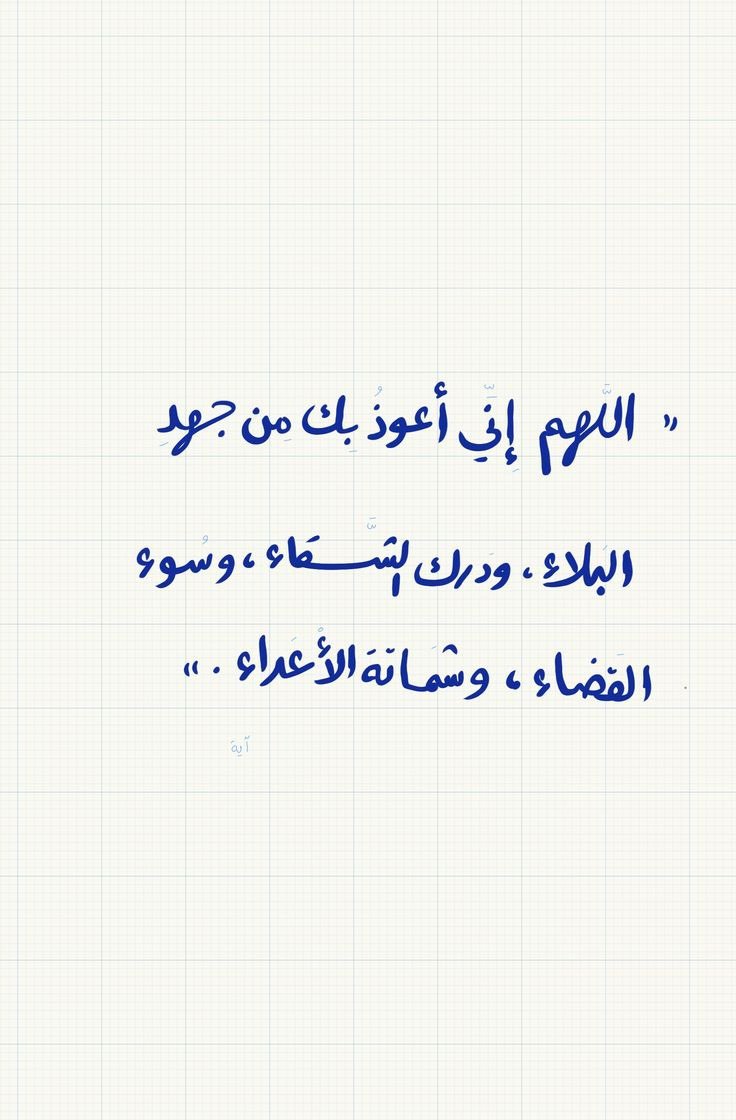 " اللَّهم إِنِّي أعوذُ بِك مِن جهدِ
البَلاء ، ودَرك الشَّقاء ، وسُوء
القَضاء ، وشمَاتة الأْعَداء . "
آية